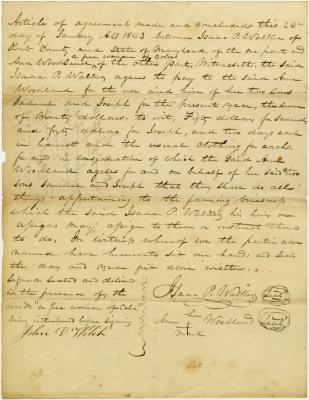 Articles of agreement made and concluded this 24th
day of January AD 1843 between Isaac P. Walker of
Kent County and State of Maryland of the one part and
a free woman of Color
Ann Woodland of the other Part, Witnesseth, the said
Isaac P. Walker agrees to pay to the said Ann
Woodland for the use and hire of her two Sons
Samuel and Joseph for the present year, the sum
of Ninety dollars, to wit, Fifty dollars for Samuel
and forty dollars for Joseph, and two days each
in harvest and the usual Clothing for each,
for and in consideration of which the said Ann
Woodland agrees for and on behalf of her said two
Sons Samuel and Joseph that they shall do all
things appertaining to the farming business
which the said Isaac P. Walker his heirs or
assigns may assign to them or instruct them
to do, In witness whereof we the parties above
named have hereunto set our hands and seals
the day and year first above written
Signed Sealed and delivered
in the presence of the
words "a free woman of Color"
being interlined before signing
John D. Welch
Isaac P. Walker Seal
her
Ann Woodland Seal
mark